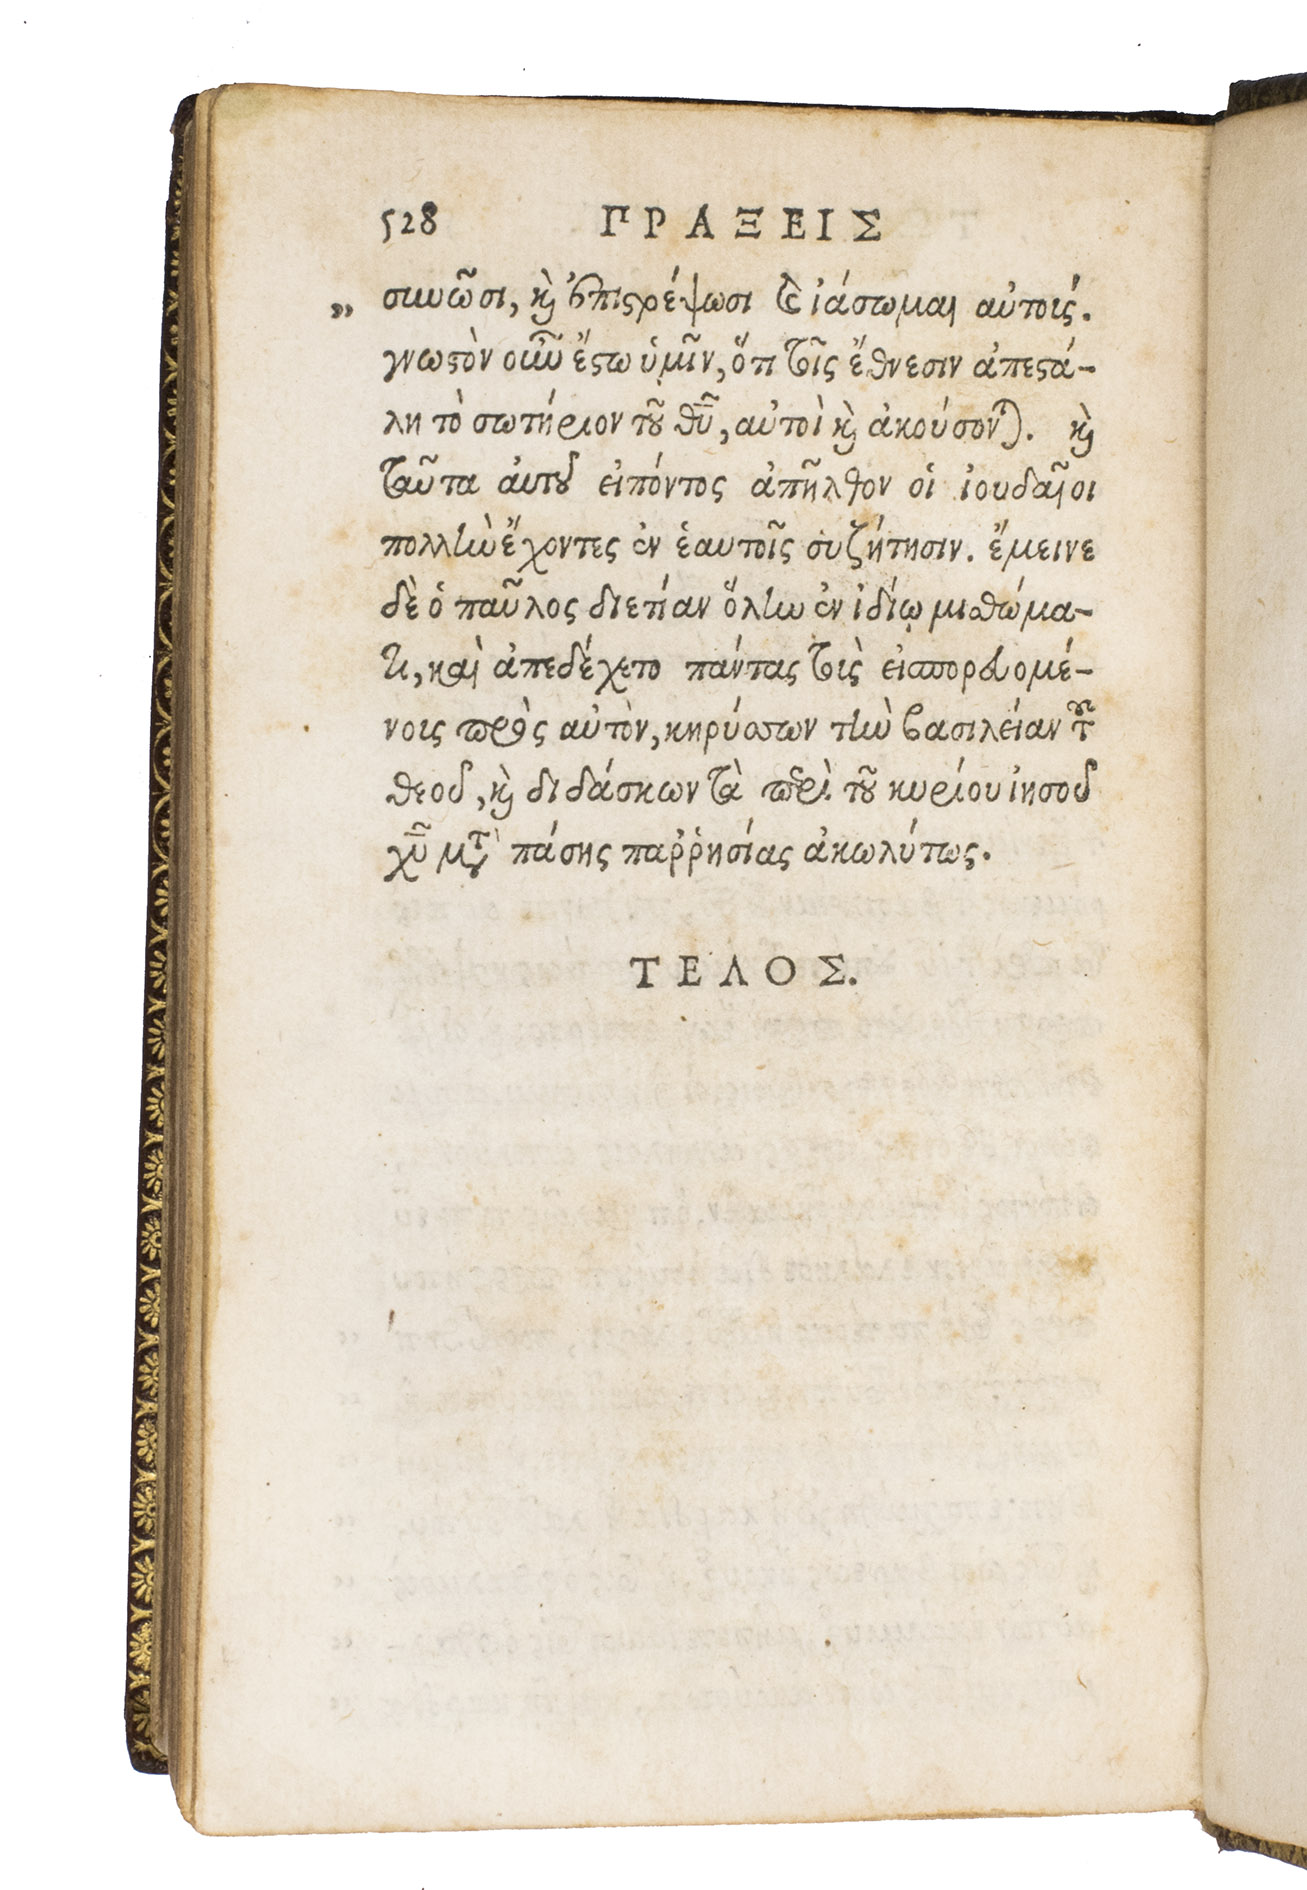 528 ΠΡΑΞΕΙΣ
„ συνῶσι, καὶ ἐπιστρέψωσι καὶ ἰάσωμαι αὐτούς.
γνωστὸν οὖν ἔστω ὑμῖν, ὅτι τοῖς ἔθνεσιν ἀπεστά-
λη τὸ σωτήριον τοῦ θῦ, αὐτοὶ καὶ ἀκούσονται. καὶ
ταῦτα αὐτοῦ εἰπόντος ἀπῆλθον οἱ ἰουδαῖοι
πολλὴν ἔχοντες ἐν ἑαυτοῖς συζήτησιν. ἔμεινε
δὲ ὁ παῦλος διετίαν ὅλην ἐν ἰδίῳ μισθώμα-
τι, καὶ ἀπεδέχετο πάντας τοὺς εἰσπορευομέ-
νους πρὸς αὐτὸν, κηρύσσων τὴν βασιλείαν τοῦ
θεοῦ, καὶ διδάσκων τὰ περὶ τοῦ κυρίου ἰησοῦ
χῦ μετὰ πάσης παῤῥησίας ἀκωλύτως.
ΤΕΛΟΣ.